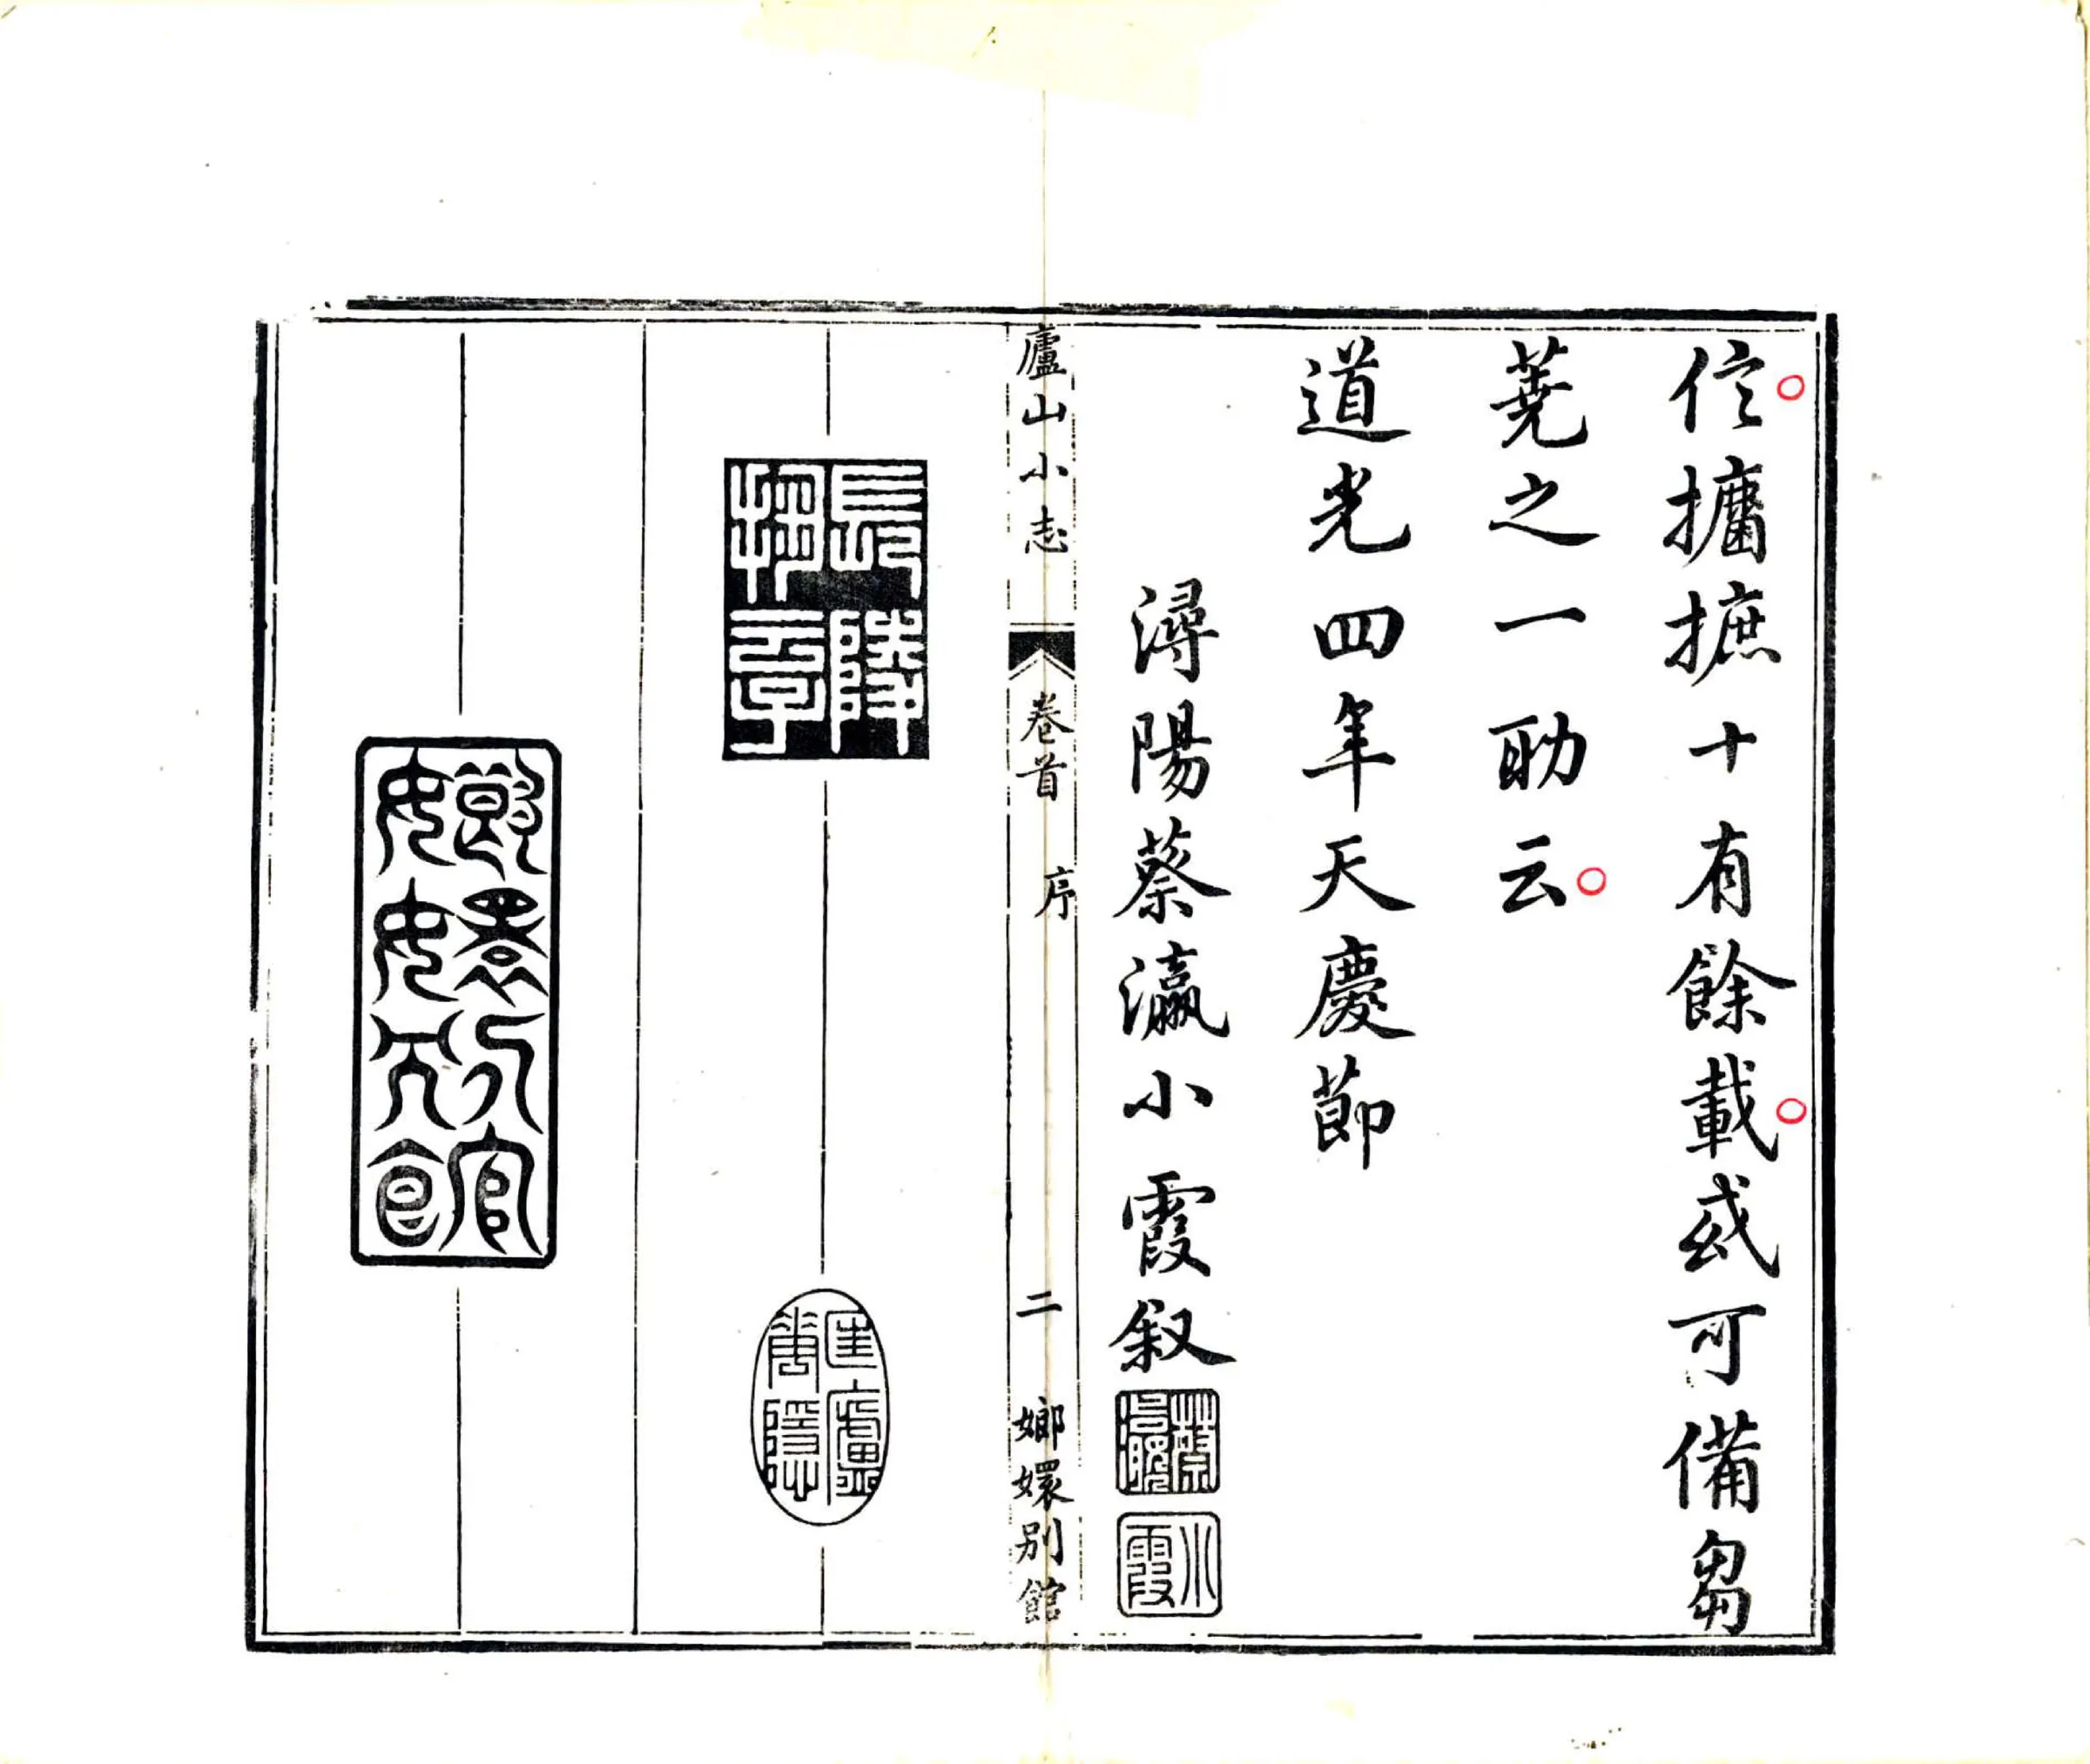 信攟摭十有餘載或可備芻
蕘之一助云
道光四年天慶節
潯陽蔡瀛小霞叙
蔡瀛
小霞
廬山小志
卷首
序
二
嫏嬛別館
匡廬
書隱
嫏嬛別館